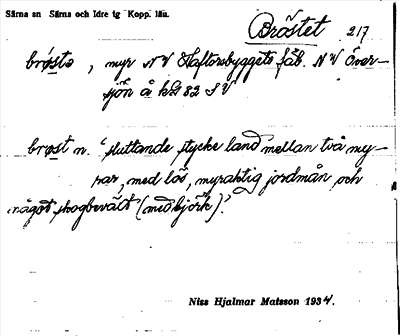 Särna sn Särna och Idre tg Kopp. län.
Bröstet 217
brøsta, myr NV Haftorsbyggets fäb. NV Över-
sjön å kbl 82 SV
brøst n. "sluttande stycke land mellan två my-
rar, med lös, myraktig jordmån och
något skogbevält (med björk)".
Niss Hjalmar Matsson 1934.